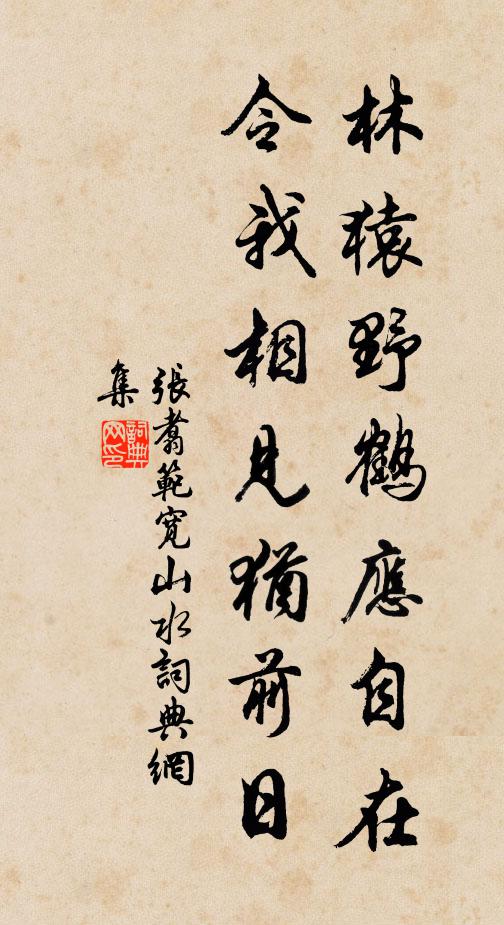 林猿野鶴應自在
令我相見猶前日
張翥範寬山水詞典網
集
詞典
网印